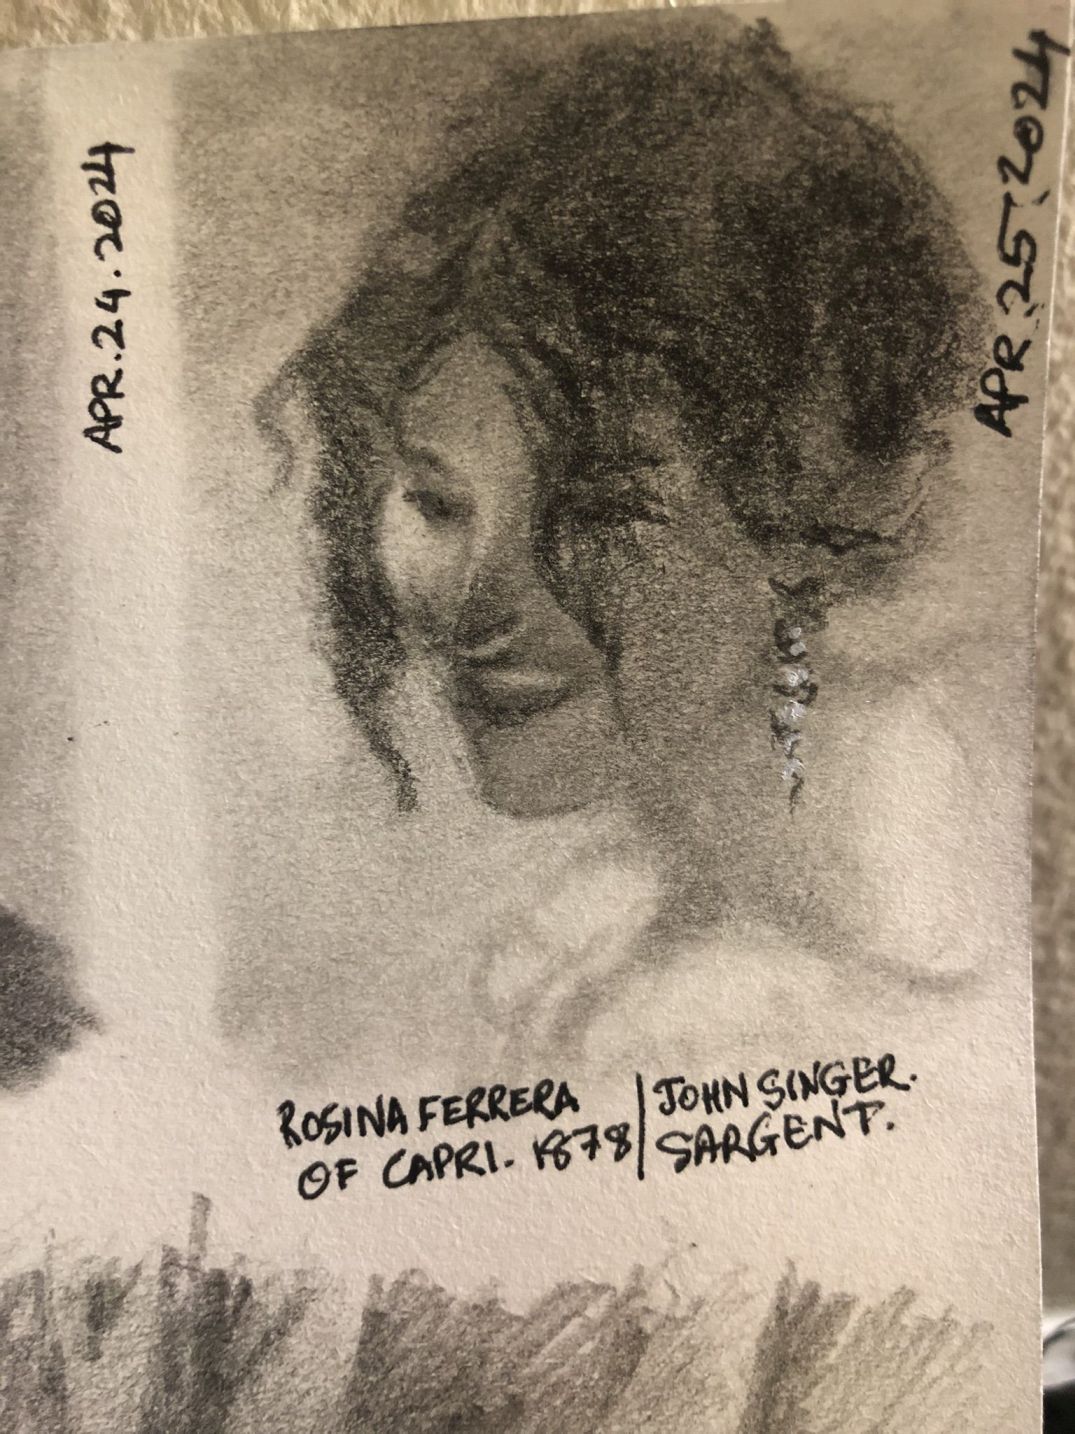 APR.24.2024
APR.25.2024
ROSINA FERRERA
OF CAPRI. 1878
JOHN SINGER.
SARGENT.